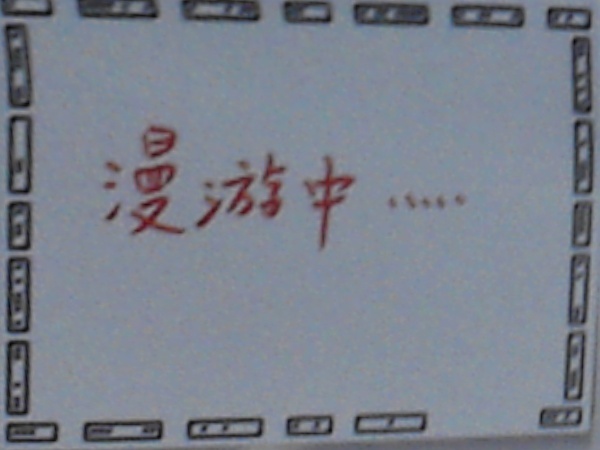 漫游中.....